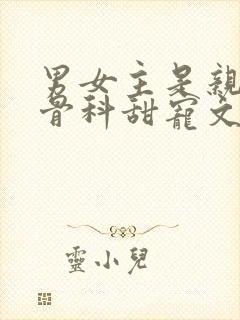 男女主是親
骨科甜寵文
靈小兒